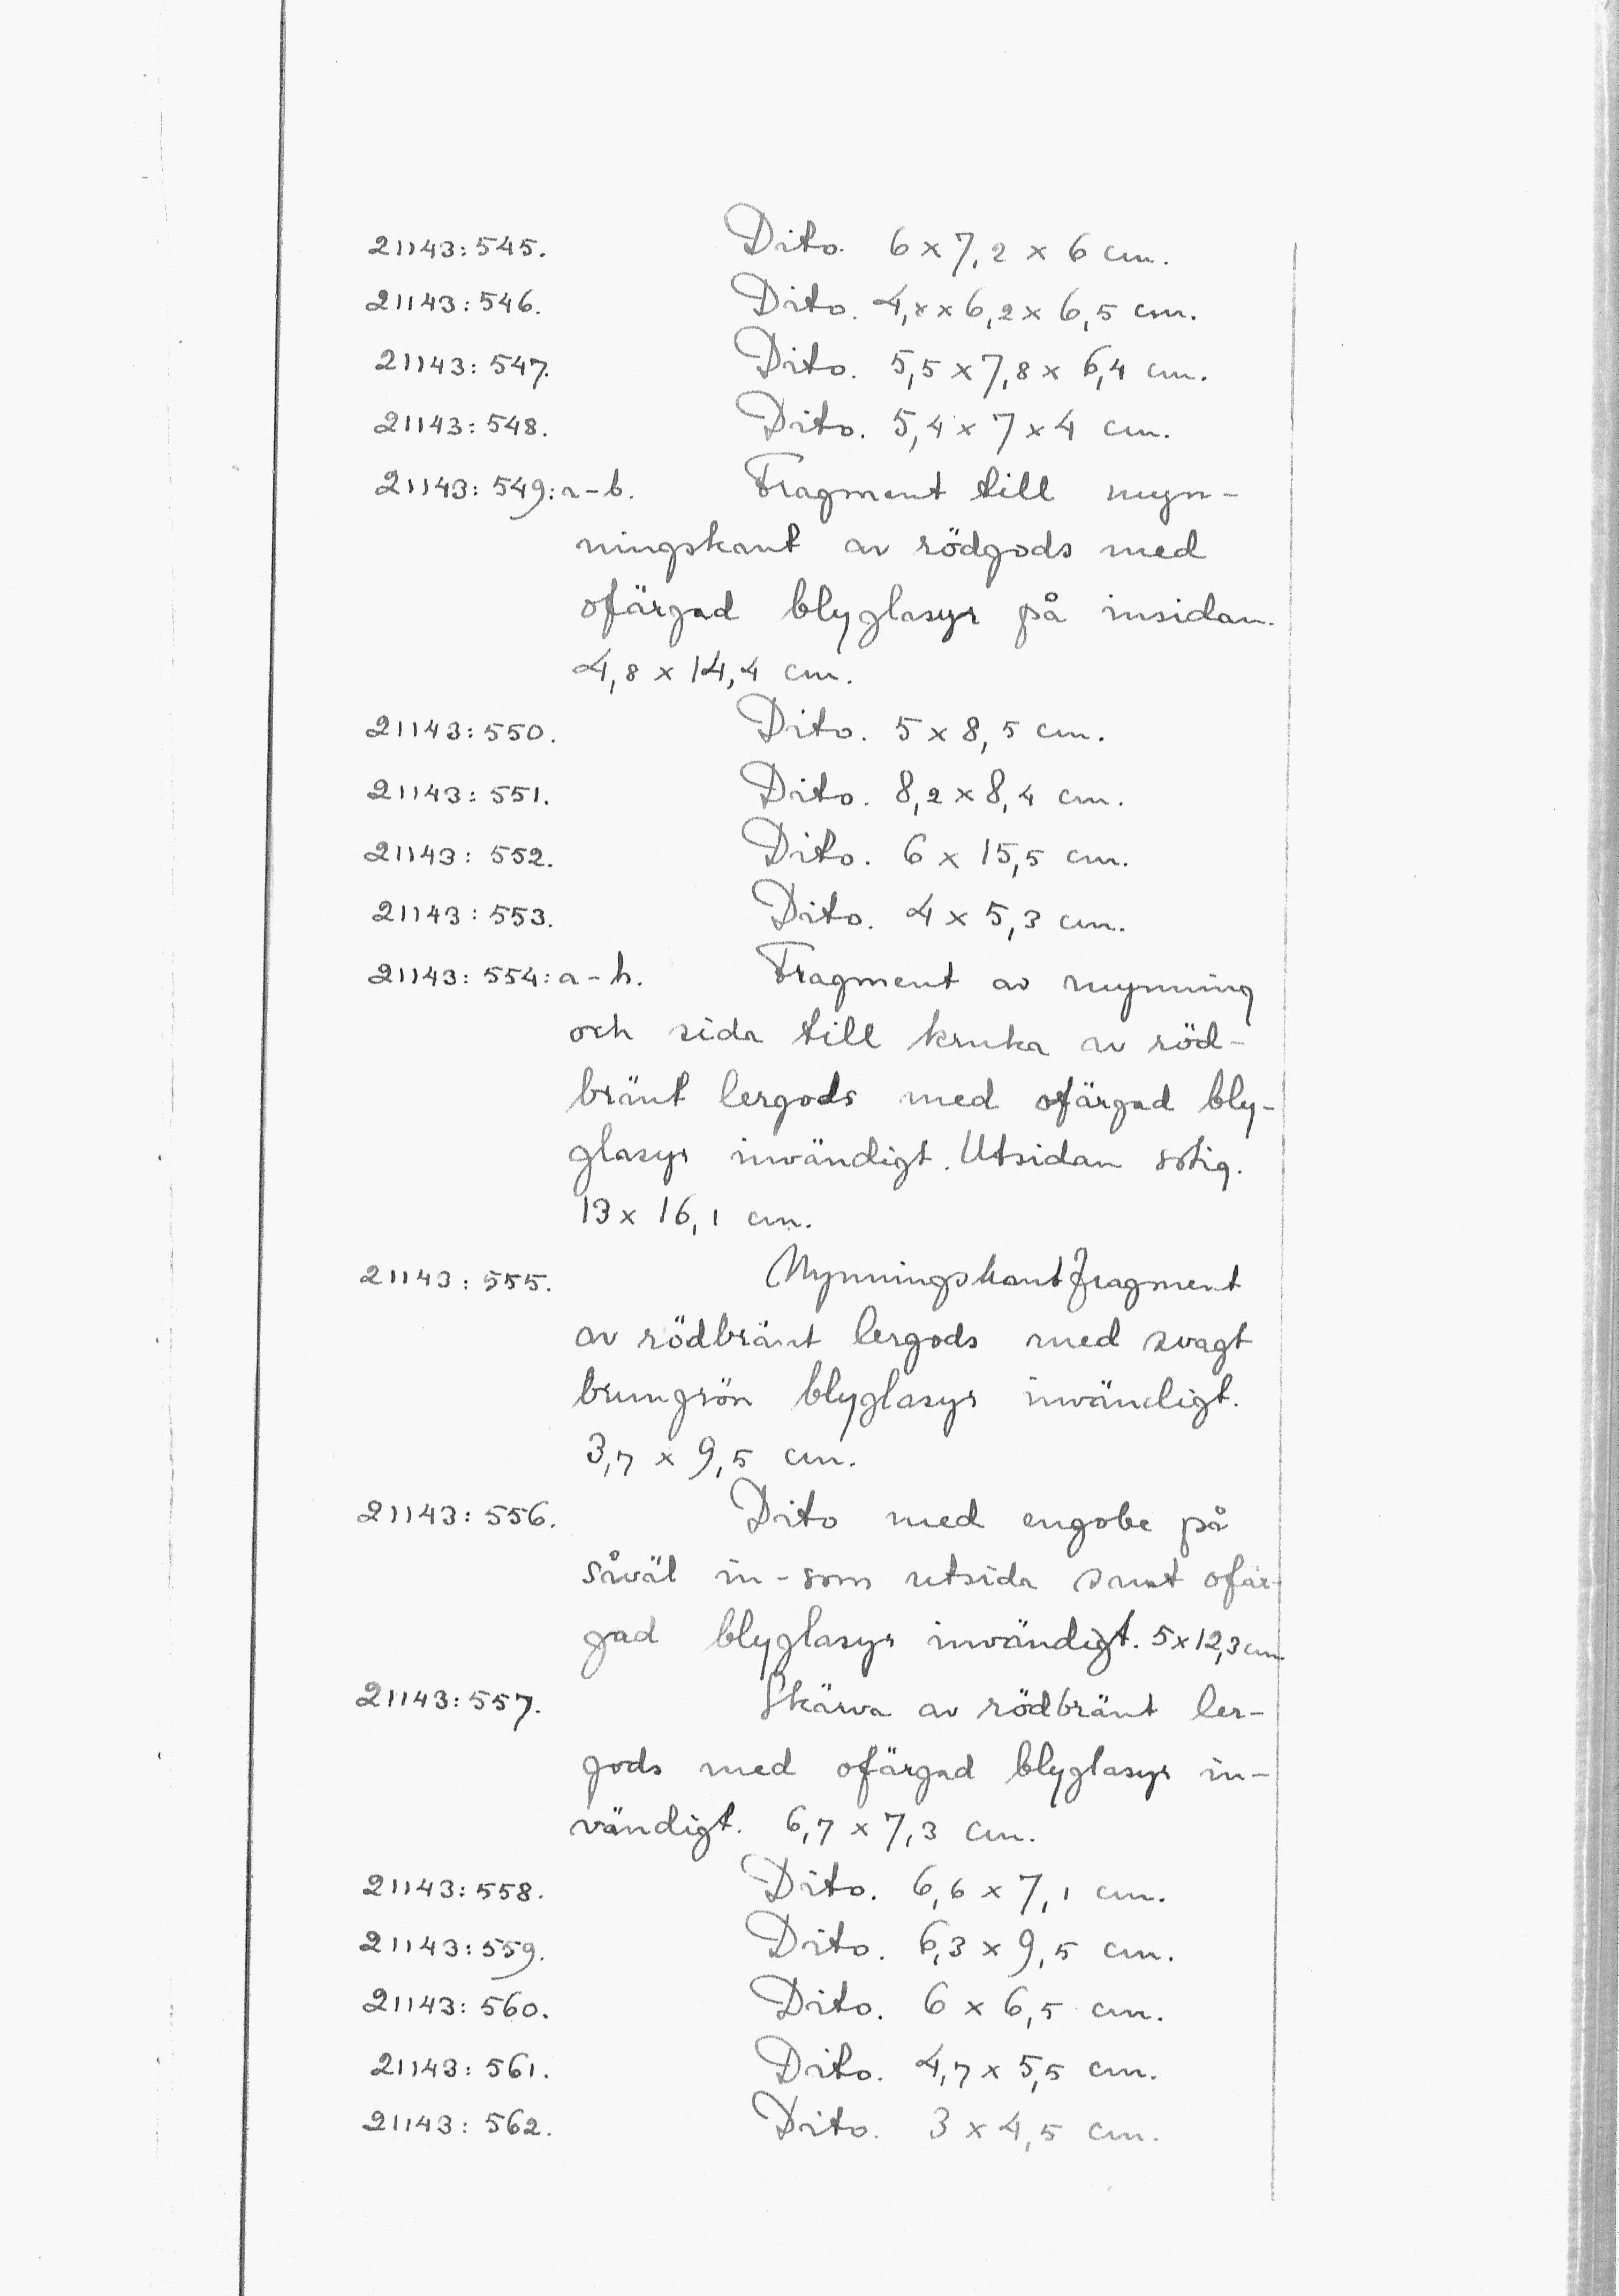 21143:545. Dito. 6 x 7,2 x 6 cm.
21143:546. Dito. 4,8 x 6,2 x 6,5 cm.
21143:547. Dito. 5,5 x 7,8 x 6,4 cm.
21143:548. Dito. 5,4 x 7 x 4 cm.
21143:549:a-b. Fragment till myn-
ningskant av rödgods med
ofärgad blyglasyr på insidan.
4,8 x 14,4 cm.
21143:550. Dito. 5 x 8,5 cm.
21143:551. Dito. 8,2 x 8,4 cm.
21143:552. Dito. 6 x 15,5 cm.
21143:553. Dito. 4 x 5,3 cm.
21143:554:a-h. Fragment av mynning
och sida till kruka av röd-
bränt lergods med ofärgad bly-
glasyr invändigt. Utsidan sotig.
13 x 16,1 cm.
21143:555. Mynningskantfragment
av rödbränt lergods med svagt
brungrön blyglasyr invändigt.
3,7 x 9,5 cm.
21143:556. Dito med engobe på
såväl in-som utsida samt ofär-
gad blyglasyr invändigt. 5 x 12,3 cm
21143:557. Skärva av rödbränt ler-
gods med ofärgad blyglasyr in-
vändigt. 6,7 x 7,3 cm.
21143:558. Dito. 6,6 x 7,1 cm.
21143:559. Dito. 6,3 x 9,5 cm.
21143:560. Dito. 6 x 6,5 cm.
21143:561. Dito. 4,7 x 5,5 cm.
21143:562. Dito. 3 x 4,5 cm.